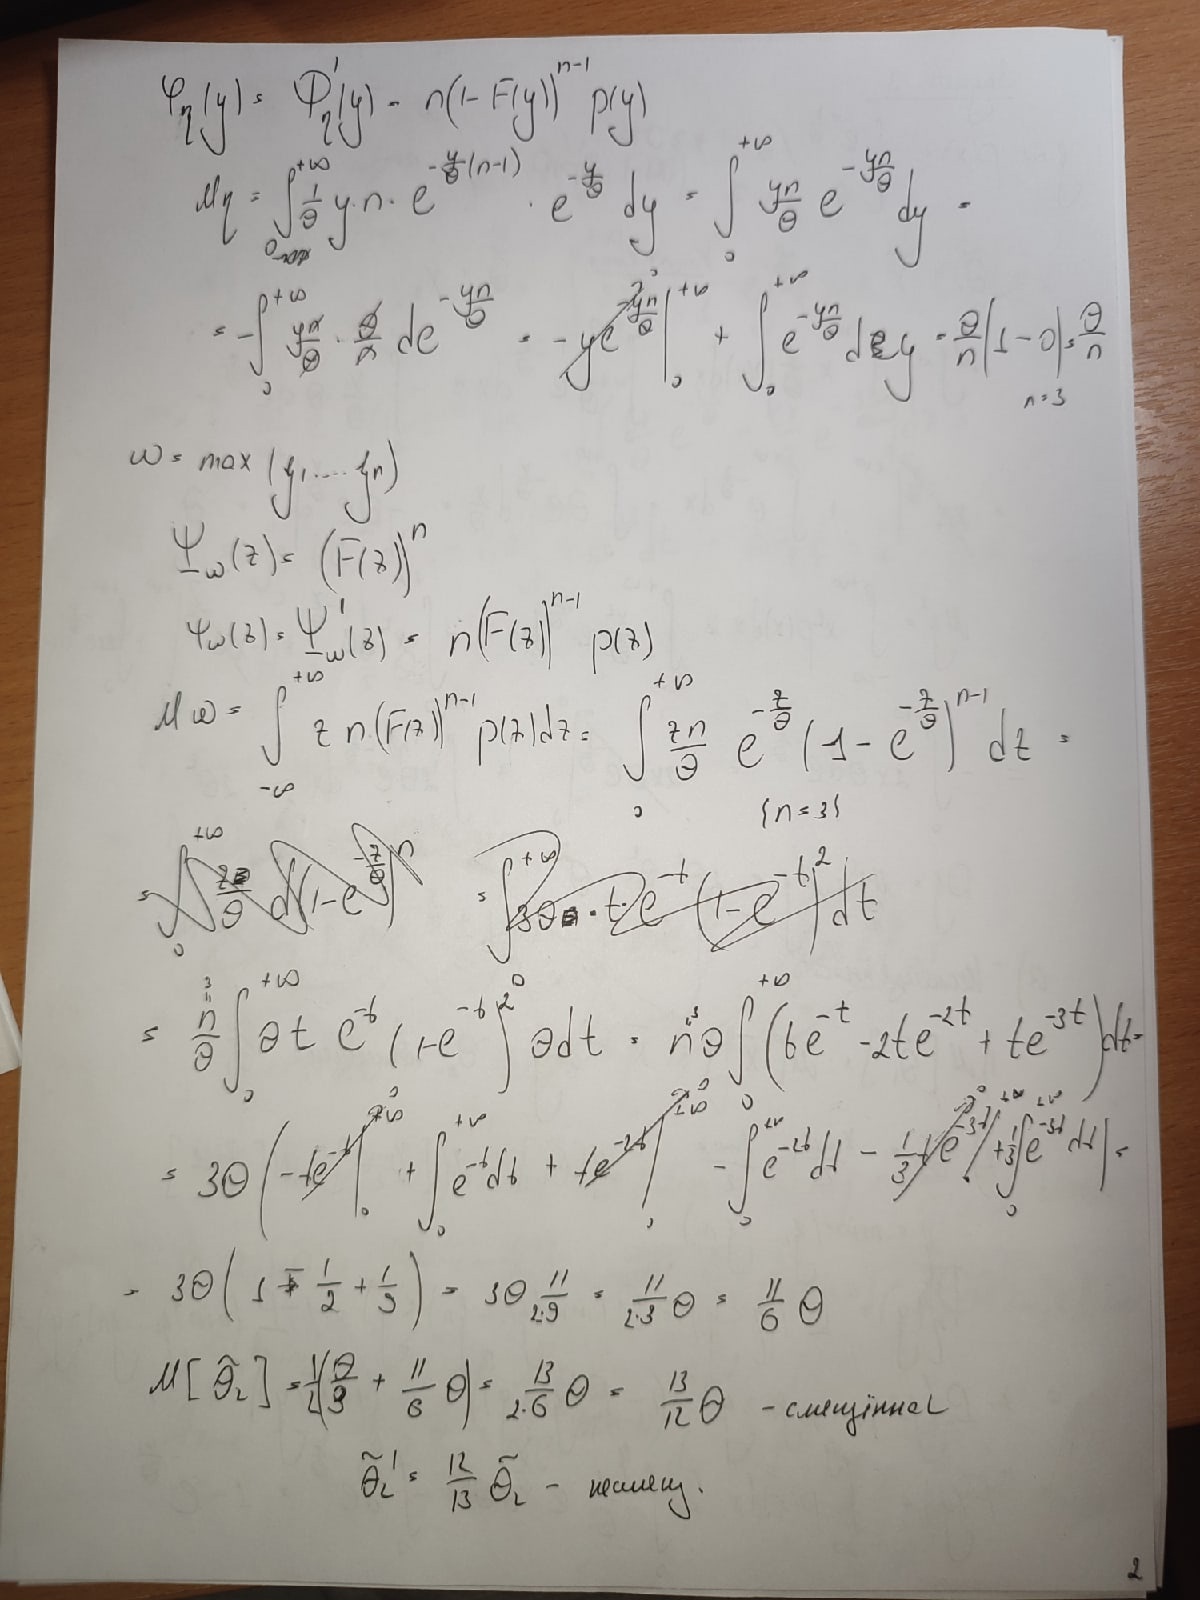 φ_η(y) = Φ'_η(y) = n(1 - F(y))^{n-1} p(y)
Mη = ∫_0^{+∞} 1/θ y·n·e^{-y/θ(n-1)} · e^{-y/θ} dy = ∫_0^{+∞} yn/θ e^{-yn/θ} dy =
= -∫_0^{+∞} yn/θ · θ/n de^{-yn/θ} = -ye^{-yn/θ}|_0^{+∞} + ∫_0^{+∞} e^{-yn/θ} dy = θ/n (1-0) = θ/n
n=3
ω = max (y_1....y_n)
Ψ_ω(z) = (F(z))^n
ψ_ω(z) = Ψ'_ω(z) = n(F(z))^{n-1} p(z)
Mω = ∫_{-∞}^{+∞} z n(F(z))^{n-1} p(z)dz = ∫_0^{+∞} zn/θ e^{-z/θ} (1 - e^{-z/θ})^{n-1} dz =
{n=3}
= n/θ ∫_0^{+∞} θt e^{-t} (1-e^{-t})^2 θdt = nθ ∫_0^{+∞} (te^{-t} - 2te^{-2t} + te^{-3t}) dt =
= 3θ ( -te^{-t}|_0^{+∞} + ∫_0^{+∞} e^{-t}dt + te^{-2t}|_0^{+∞} - ∫_0^{+∞} e^{-2t}dt - 1/3 te^{-3t}|_0^{+∞} + 1/3 ∫_0^{+∞} e^{-3t}dt ) =
= 3θ ( 1 - 1/2 + 1/9 ) = 3θ 11/2·9 = 11/2·3 θ = 11/6 θ
M[θ̃_2] = 1/2 (θ/3 + 11/6 θ) = 13/2·6 θ = 13/12 θ - смещённая
θ̃_2' = 12/13 θ̃_2 - несмещ.
2